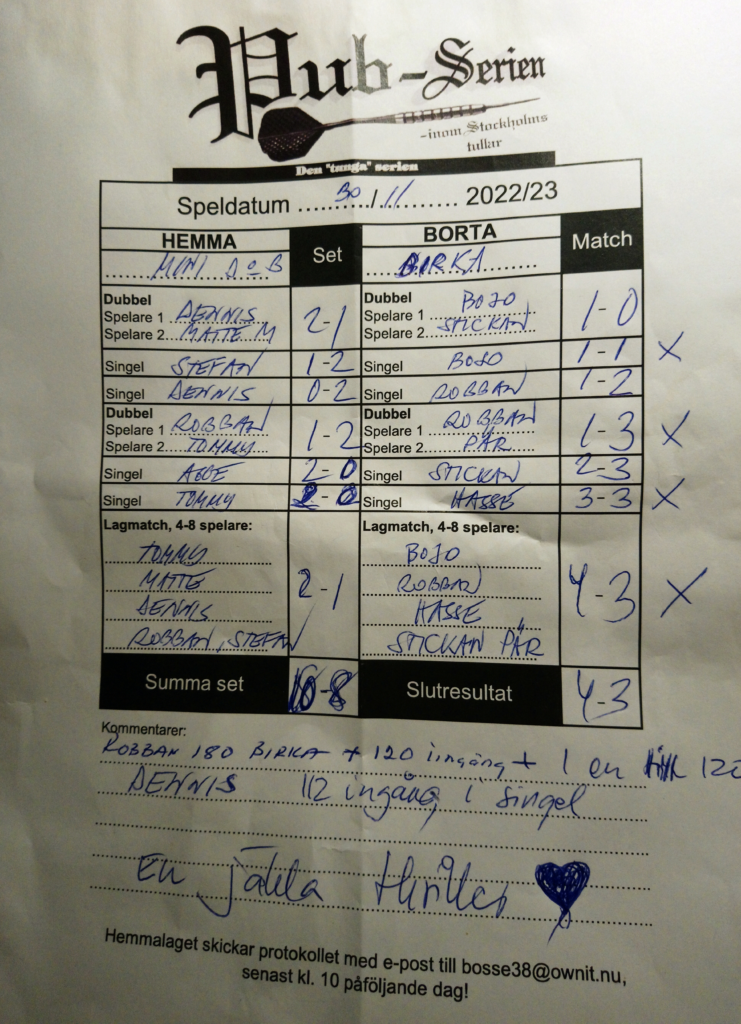 Pub-Serien
-inom Stockholms
tullar
Den "tunga" serien
Speldatum 30/11 2022/23
HEMMA Set BORTA Match
MINI DoB BIRKA
Dubbel Dubbel
Spelare 1 DENNIS 2-1 Spelare 1 BOJO 1-0
Spelare 2 MATTE M Spelare 2 STICKAN
Singel STEFAN 1-2 Singel BOJO 1-1 X
Singel DENNIS 0-2 Singel ROBBAN 1-2
Dubbel Dubbel
Spelare 1 ROBBAN 1-2 Spelare 1 ROBBAN 1-3 X
Spelare 2 TOMMY Spelare 2 PÄR
Singel 2-0 Singel STICKAN 2-3
Singel TOMMY 2-0 Singel HASSE 3-3 X
Lagmatch, 4-8 spelare: Lagmatch, 4-8 spelare:
TOMMY BOJO
MATTE 2-1 ROBBAN 4-3 X
DENNIS HASSE
ROBBAN, STEFAN STICKAN PÄR
Summa set 10-8 Slutresultat 4-3
Kommentarer:
ROBBAN 180 BIRKA + 120 ingång + 1 en till 120
DENNIS 112 ingång i singel
En jäkla thriller
Hemmalaget skickar protokollet med e-post till bosse38@ownit.nu,
senast kl. 10 påföljande dag!